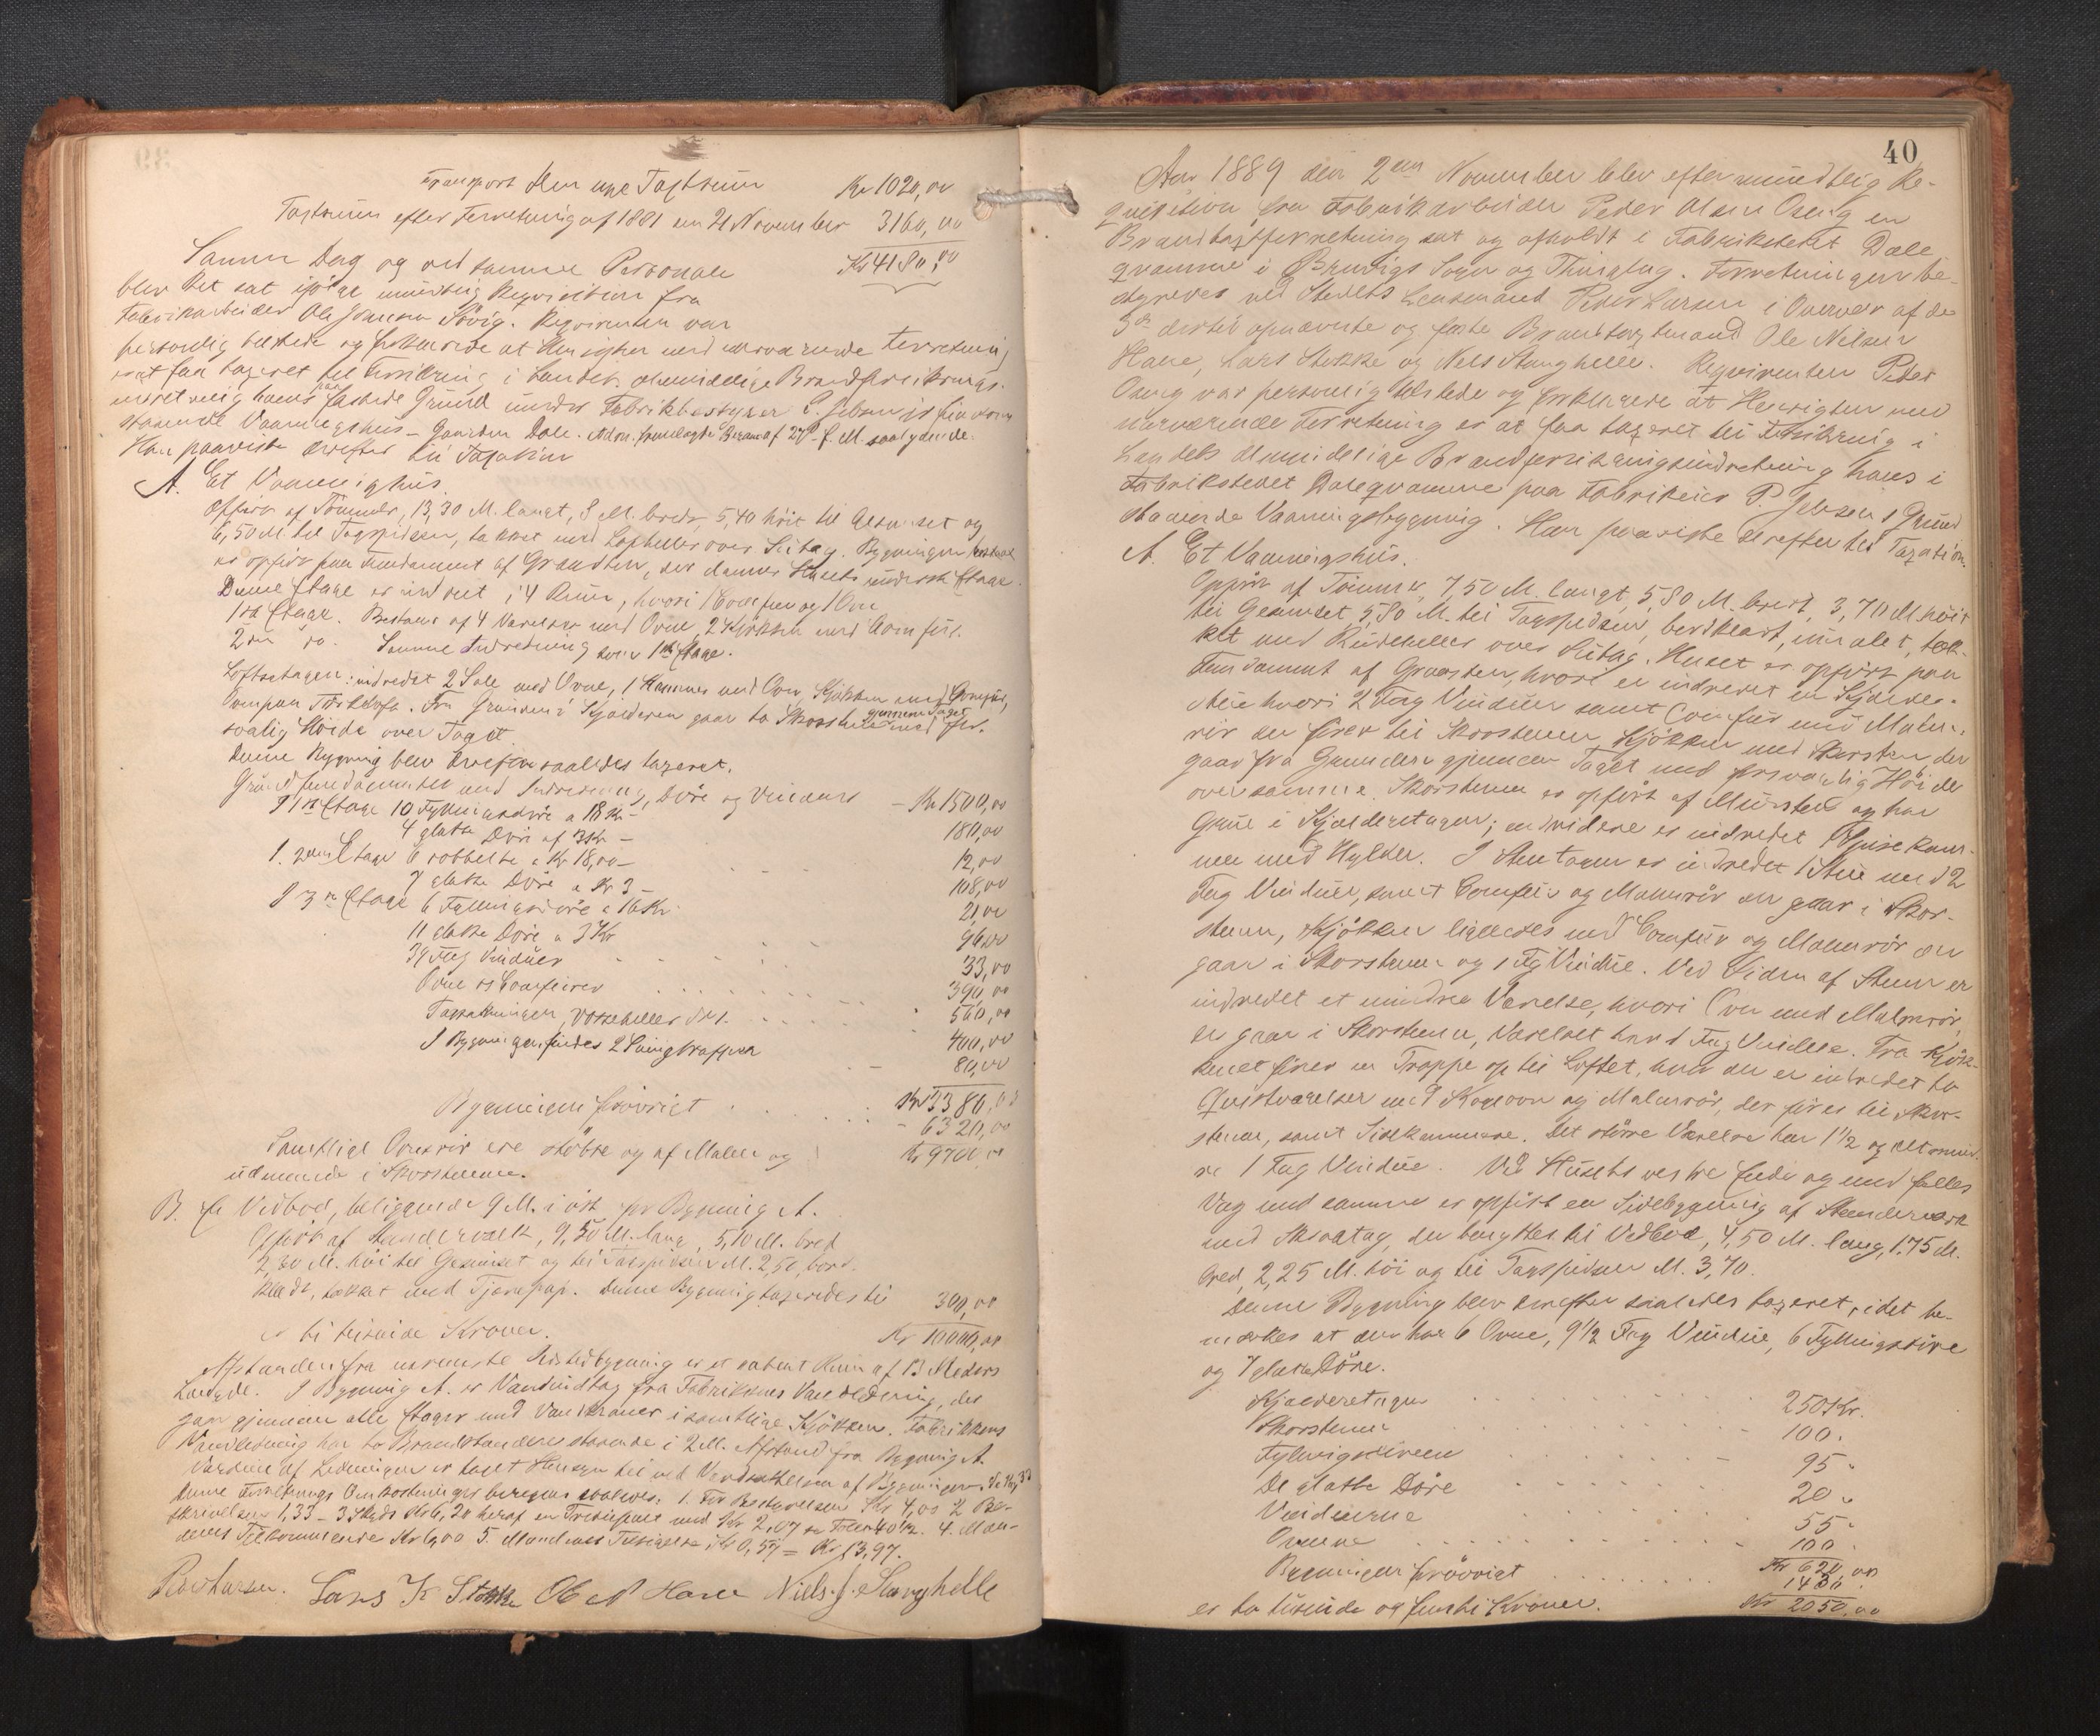 Transport den nye Taxtsum Kr 1020,00
Taxtsum efter Forretning af 1881 den 21 November 3160,00
Kr 4180,00
Samme Dag og ved samme Personale
blev Ret sat ifølge mundtlig Reqvisition fra
Fabrikarbeider Ole Johannesen Søvig. Reqvirenten var
personlig tilstede og forklarede at Hensigten med nærværende Forretning
er at faa taxeret til Forsikring i Landets almindelige Brandforsikrings-
indretning hans paa fæstede Grund under Fabrikbestyrer P. Jebsen jr
staaende Vaaningshus – Gaarden Dale. Adm. fremlagde Beram af 27 f. M. saalydende.
Han paaviste derefter til Taxation
A. Et Vaaningshus.
Opført af Tømmer, 13,30 M. langt, 8 M. bredt, 5,40 høit til Gesimset og
6,50 M. til Tagspidsen, takket med over Sutag. Bygningen
er opført paa Fundament af Graasten, der danner Husets underste Etage.
Denne Etage er indredet i 4 Rum, hvori 1 Comfur og 1 Ovn
1ste Etage. Bestaar af 4 Værelser med Ovne, 2 Kjøkken med Comfur.
2den do. Samme Indredning som 1ste Etage.
Loftsetagen: indredet 2 Sale med Ovne, 1 Kammer med Ovn, Kjøkken med Comfur,
Ovenpaa Tørkeloft. Fra Grunden i Kjælderen gaar to Skorstene gjennem Taget med for-
svarlig Høide over Taget.
Denne Bygning blev derefter saaledes taxeret.
Grundfundamentet med Indredning, Døre og Vinduer – Kr 1500,00
I 1ste Etage 10 Fyldingsdøre a 18 Kr – 180,00
4 glatte Døre af 3 Kr – 12,00
I 2den Etage 6 dobbelte a Kr 18,00 – 108,00
7 glatte Døre a Kr 3 – 21,00
I 3die Etage 6 Fyldingsdøre a 16 Kr. 96,00
11 glatte Døre a 3 Kr 33,00
39 Fag Vinduer 390,00
Ovne og Comfurer 560,00
Tagtækningen, Vosseheller 400,00
I Bygningen findes 2 Svingtrapper 80,00
Kr 3380,00
Bygningen forøvrigt 6320,00
Samtlige Ovnsrør ere støbte og af Malm og Kr 9700,00
udmunde i Skorstenene.
B. En Vedbod, beliggende 9 M. i øst for Bygning A.
Opført af Stenderværk, 9,50 M. lang, 5,10 M. bred
2,30 M. høi til Gesimset og til Tagspidsen M. 2,50, bord-
klædt, takket med Tjærepap. Denne Bygning taxeredes til 300,00
er ti tusinde Kroner. Kr 10000,00
Afstanden fra nærmeste Ildstedbygning er et aabent Rum af 13 Meders
Længde. I Bygning A. er Vandindtag fra Fabrikkens Vandledning, der
gaar gjennem alle Etager med Vandkraner i samtlige Kjøkken. Fabrikkens
Vandledning har to Brandstændere staaende i 2 M. Afstand fra Bygning A.
Værdien af Ledningen er taget Hensyn til ved Værdsættelsen af Bygningen.
Denne Forretnings Omkostninger beregnes saaledes: 1. For Bestyrelsen Kr 4,00 2 Be-
skrivelsen 1,33 – 3 Skyds Kr 6,20 heraf en Trediepart med Kr 2,07 4. Mæn-
denes Tilkommende Kr 6,00 5. Mændenes Tilsigelse Kr 0,57 = Kr 13,97.
Peder Larsen. Lars K Stokke Ole N Hane Niels J. Stanghelle
40
Aar 1889 den 2den November blev efter mundtlig Re-
quisition fra Fabrikarbeider Peder Olsen Oseng en
Brandtaxtforretning sat og afholdt i Fabrikstedet Dale
qvamme i Bruvigs Sogn og Thinglag. Forretningen be-
styredes ved Stedets Lensmand Peder Larsen i Overvær af de
3de dertil opnævnte og faste Brandtaxtmænd Ole Nilsen
Hane, Lars Stokke og Nels Stanghelle. Reqvirenten Peder
Oseng var personlig tilstede og forklarede at Hensigten med
nærværende Forretning er at faa taxeret til Forsikring i
Landets almindelige Brandforsikringsindretning hans i
Fabrikstedet Daleqvamme paa Fabrikeier P. Jebsens Grund
staaende Vaaningsbygning. Han paaviste derefter til Taxation.
A. Et Vaaningshus.
Opført af Tømmer, 7,50 M. langt, 5,80 M. bredt, 3,70 M. høit
til Gesimset, 5,80 M. til Tagspidsen, bordklædt, umalet, tæk-
ket med Rudeheller over Sutag. Huset er opført paa
Fundament af Graasten, hvori er indredet en Kjælder-
stue hvori 2 Fag Vinduer samt Comfur med Malm-
rør der fører til Skorstenen, Kjøkken med Skorsten der
gaar fra Grunden gjennem Taget med forsvarlig Høide
over samme. Skorstenen er opført af Mursten og har
Grue i Kjælderetagen; endvidere er indredet Spisekam-
mer med Hylder. I Stuetagen er indredet 1 Stue med 2
Fag Vinduer, samt Comfur og Malmrør der gaar i Skor-
stenen, Kjøkken ligeledes med Comfur og Malmrør der
gaar i Skorstenen og 1 Fag Vindue. Ved Siden af Stuen er
indredet et mindre Værelse, hvori Ovn med Malmrør,
der gaar i Skorstenen, Værelset har 1 Fag Vindue. Fra Kjøk-
kenet fører en Trappe op til Loftet, hvor der er indredet to
Qvistværelser med Kogeovn og Malmrør, der fører til Skor-
stenen, samt Sidekammere. Det større Værelse har 1½ og det mind-
re 1 Fag Vindue. Ved Husets vestre Ende og med fælles
Væg med samme er opført en Sidebygning af Stenderværk
med Skraatag, der benyttes til Vedbod, 4,50 M. lang, 1,75 M.
bred, 2,25 M. høi og til Tagspidsen M. 3,70.
Denne Bygning blev derefter saaledes taxeret, idet be-
mærkes at den har 6 Ovne, 9½ Fag Vindue, 6 Fyldingsdøre
og 7 glatte Døre.
Kjælderetagen 250 Kr.
Skorstenen 100.
Fyldingsdørene 95 "
De glatte Døre 20 "
Vinduerne 55 "
Ovnene 100 "
Kr 620,00
Bygningen forøvrigt 1430
er to tusinde og femti Kroner. Kr 2050,00